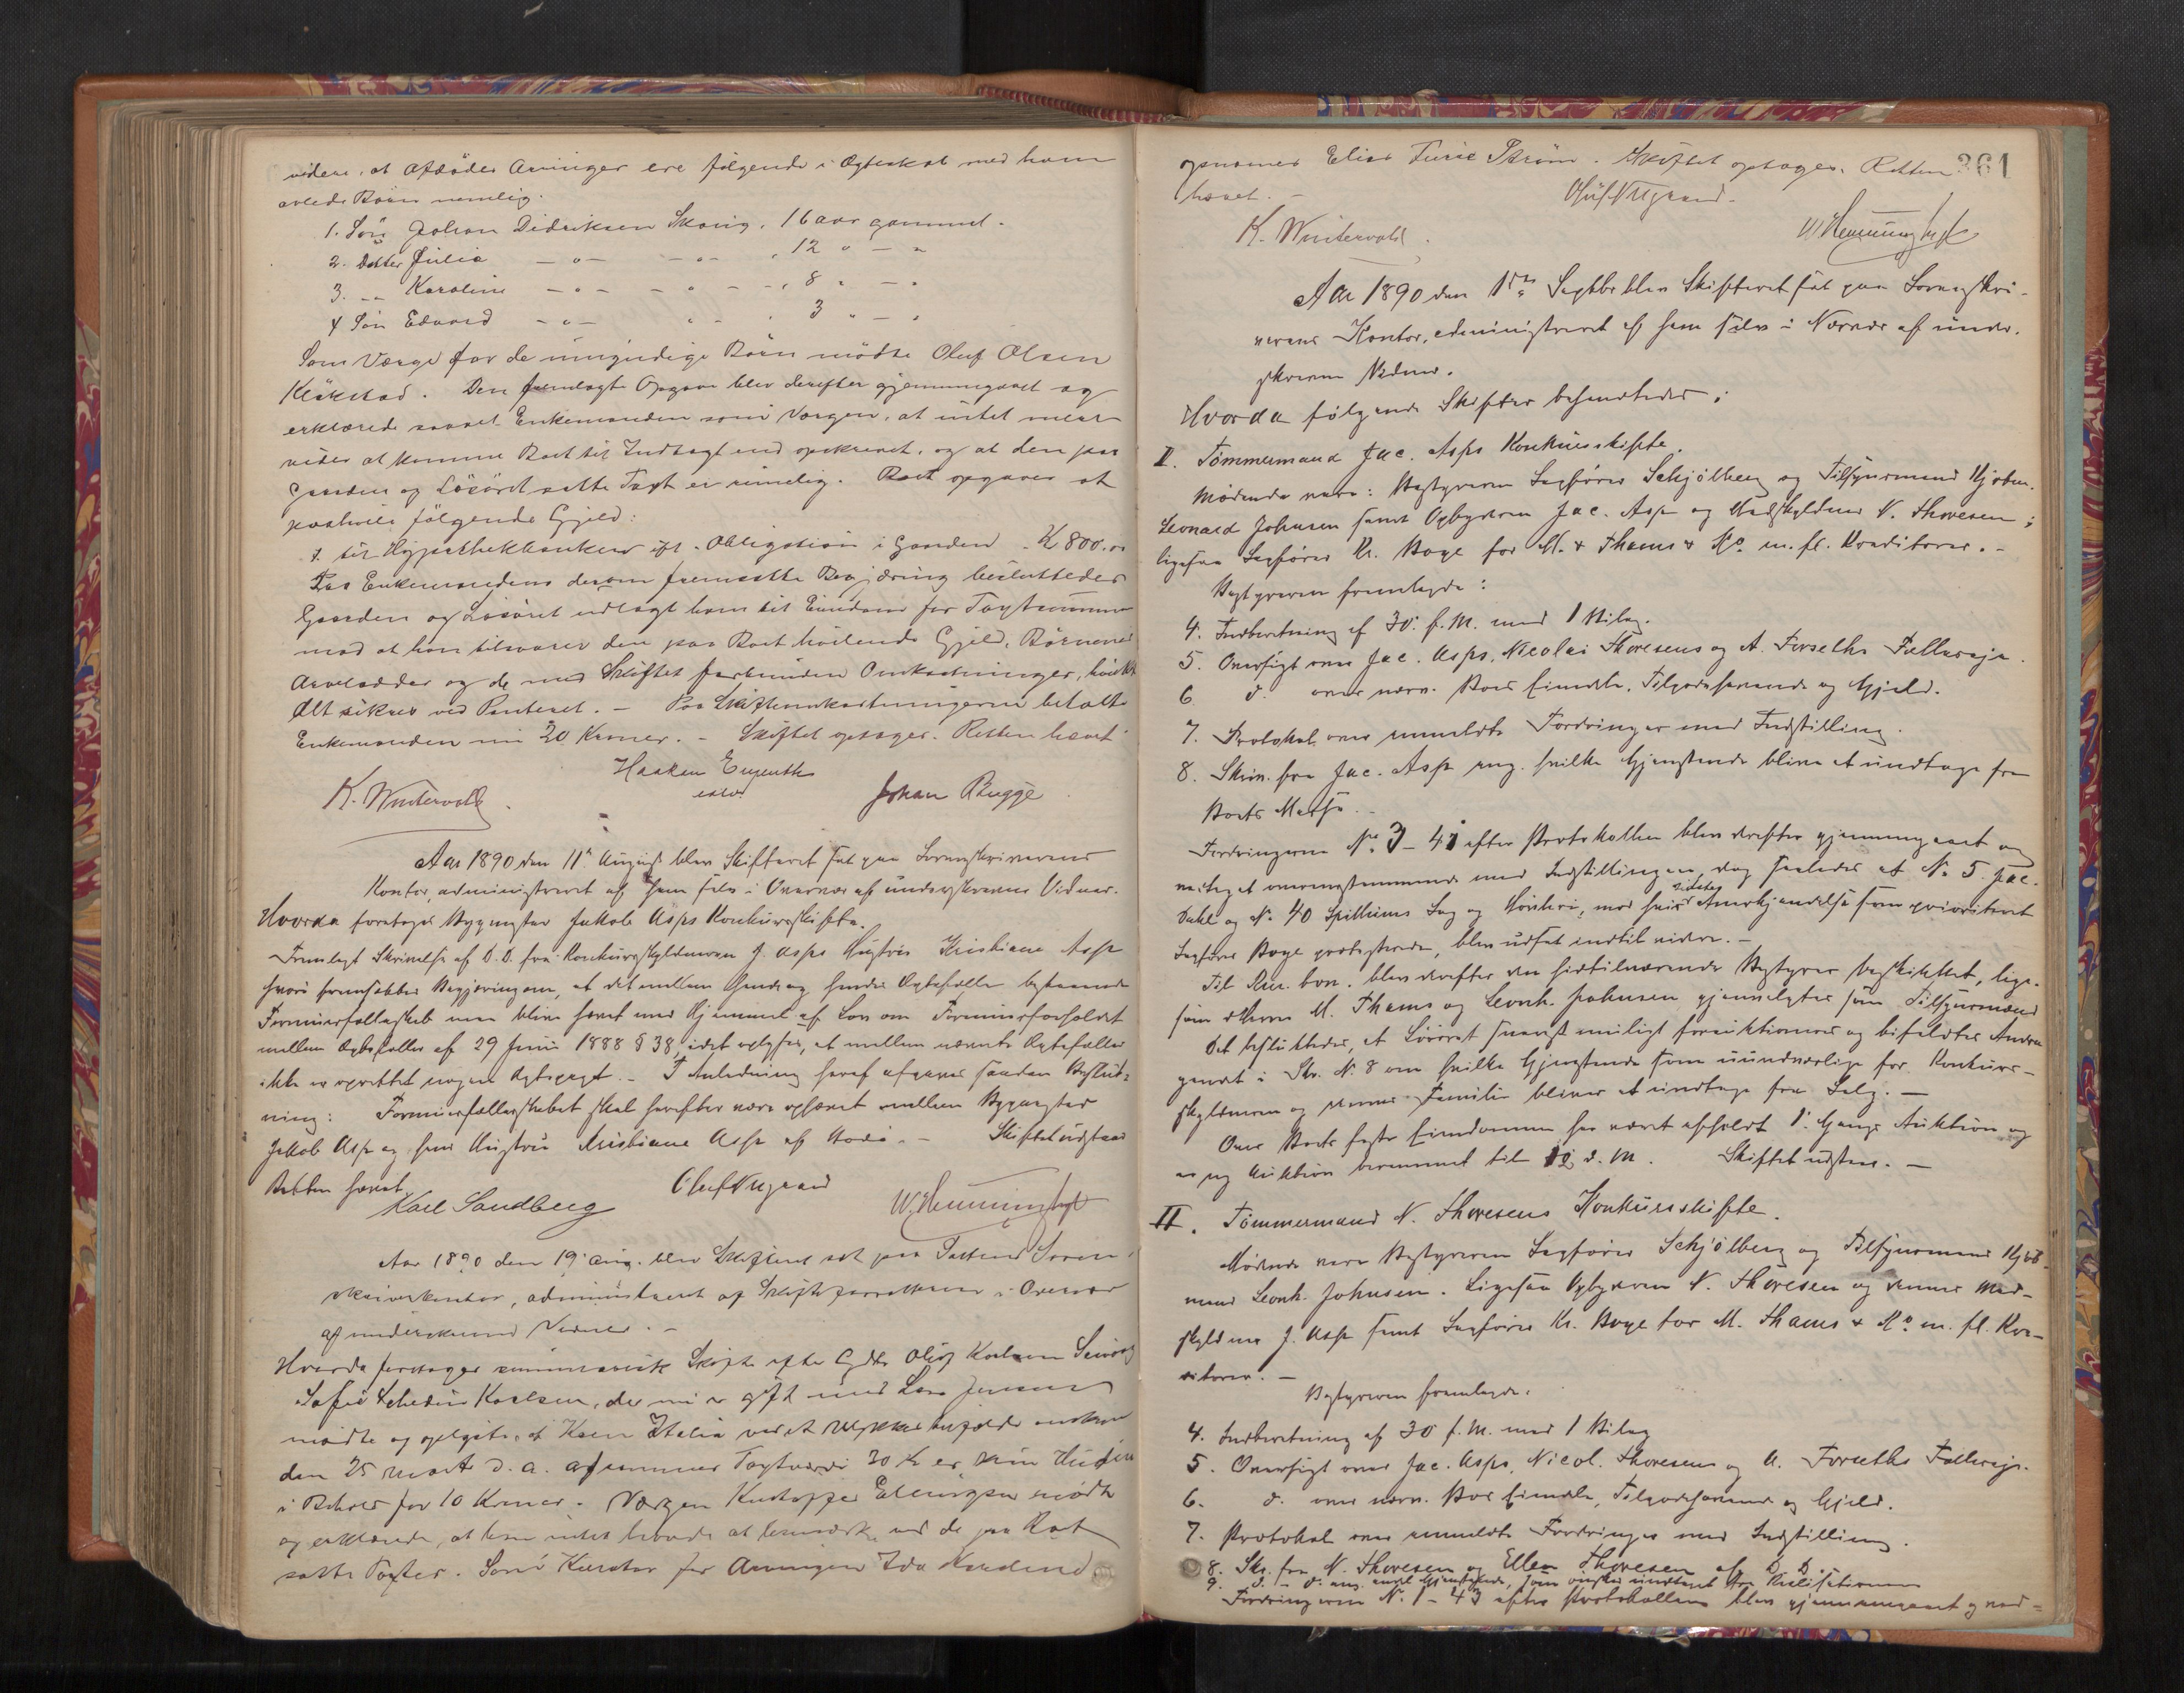 videre, at afdødes Arvinger ere følgende i Ægteskab med ham
avlede Børn nemlig.
1. Søn Johan Didriksen Skavig, 16 aar gammel.
2. Datter Julia — " — — " — , 12 " — "
3. — " — Karoline — " — — " — , 8 " — "
4 Søn Edvard — " — " — , 3 " — "
Som Værge for de umyndige Børn mødte Oluf Olsen
Klækstad. Den fremlagte Opgave blev derefter gjennemgaaet og
erklærede saavel Enkemanden som Værgen, at intet mere
vides at komme Boet til Indtægt end opskrevet, og at den paa
Gaarden og Løsøret satte Taxt er rimelig. Boet opgaves at
paahvile følgende Gjeld:
1. til Hypothekbanken ifl. Obligation i Gaarden K 800.00
Paa Enkemandens derom fremsatte Begjæring besluttedes
Gaarden og Løsøret udlagt ham til Eiendom for Taxtsummen
mod at han tilsvarer den paa Boet hvilende Gjeld, Børnenes
Arvelodder og de med Skiftet forbundne Omkostninger, hvilket
Alt sikres ved Panteret. — Paa Skifteomkostningerne betalte
Enkemanden nu 20 Kroner. — Skiftet optages. Retten hævet
K. Wintervold. Haaken Eugenth Johan Bugge
Aar 1890 den 11te August blev Skifteret sat paa Sorenskriverens
Kontor, administreret af ham selv i Overvær af underskrevne Vidner.
Hvorda foretoges Bygmester Jakob Asps Konkursskifte.
Fremlagt Skrivelse af D. D. fra Konkursskyldneren J. Asps Hustru Kristiane Asp
hvori fremsættes Begjæring om, at det mellem hende og hendes Ægtefælle bestaaende
Formuesfællesskab maa blive hævet med Hjemmel af Lov om Formuesforholdet
mellem Ægtefæller af 29 Juni 1888 § 38, idet oplyses, at mellem nævnte Ægtefæller
ikke er oprettet nogen Ægtepagt. — I Anledning heraf afgaves saadan Beslut-
ning: Formuesfællesskabet skal herefter være ophævet mellem Bygmester
Jakob Asp og hans Hustru Kristiane Asp af Bodø. — Skiftet udstaar
Retten hævet.
Karl Sandberg Oluf Nygaard W. Henningsen
Aar 1890 den 19 Aug. blev Skifteret sat paa Saltens Soren-
skriverkontor, administreret af Skifteforvalteren i Overvær
af underskrevne Vidner. —
Hvorda foretoges summarisk Skifte efter
Karlsen, der nu er gift med Lars Jensen
mødte og oplyste, at
den 25 Marts d. a. Taxtværdi 30 Kr er
i Behold for 10 Kroner. Værgen mødte
og erklærede, at han intet havde at bemærke ved de paa Boet
satte Taxter. Som Kurator for Arvingen Ida
361
opnævnes Elias Furie Strøm. Skiftet optages. Retten
hævet. —
K. Wintervold. Oluf Nygaard. W. Henningsen
Aar 1890 den 1ste Septbr blev Skifteret sat paa Sorenskri-
verens Kontor, administreret af ham selv i Nærvær af under-
skrevne Vidner.
Hvorda følgende Skifter behandledes:
I. Tømmermand Jac. Asps Konkursskifte.
Mødende vare: Bestyreren Sagfører Schjølberg og Tilsynsmand Kjøbm.
Leonard Johnsen samt Opbyderen Jac. Asp og Medskyldner N. Thoresen;
ligesaa Sagfører Kr. Boye for M. Thams & Ko m. fl. Kreditorer. —
Bestyreren fremlagde:
4. Indberetning af 30. f. M. med 1 Bilag.
5. Oversigt over Jac. Asps, Nicolai Thoresens og A. Forseths Fælleseje.
6. d. over nævn. Boes Eiendele, Tilgodehavende og Gjeld.
7. Protokol over anmeldte Fordringer med Indstilling.
8. Skriv. fra Jac. Asp ang. hvilke Gjenstande blive at undtage fra
Boets Masse. —
Fordringerne No 3 – 41 efter Protokollen blev derefter gjennemgaaet og
vedtaget overensstemmende med Indstillingen, dog saaledes at No 5 Jac.
Dahl og No 40 Spillums Sag og Høvleri, mod hvis sidstes Anerkjendelse som prioriteret
Sagfører Boye protesterede, blev udsat indtil videre. —
Til Cur. bon. blev derefter den hidtilværende Bestyrer beskikket, lige-
som Herrer M. Thams og Leonh. Johnsen gjenvalgtes som Tilsynsmænd
Det besluttedes, at Løsøret snarest muligt forauktioneres og bifaldtes Andra-
gendet i Skr. No 8 om hvilke Gjenstande som uundværlige for Konkurs-
skyldneren og dennes Familie bliver at undtage fra Salg. —
Over Boets faste Eiendomme har været afholdt 1. Gangs Auktion og
er ny Auktion berammet til 12 d. M. Skiftet udstaar. —
II. Tømmermand N. Thoresens Konkursskifte.
Mødende vare Bestyreren Sagfører Schjølberg og Tilsynsmand Kjøb-
mand Leonh. Johnsen. Ligesaa Opbyderen N. Thoresen og dennes Med-
skyldner J. Asp samt Sagfører Kr. Boye for M. Thams & Ko m. fl. Kre-
ditorer. —
Bestyreren fremlagde.
4. Indberetning af 30 f. M. med 1 Bilag
5. Oversigt over Jac. Asps, Nicol. Thoresens og A. Forseths Fælleseje.
6. d. over nævn. Boes Eiendele, Tilgodehavende og Gjeld.
7. Protokol over anmeldte Fordringer med Indstilling.
8. Skr. fra N. Thoresen og Ellen Thoresen af D. D.
9. d. – d. ang. endel Gjenstande, som ønskes undtaget fra Realisationen
Fordringerne No 1 – 43 efter Protokollen blev gjennemgaaet og ved-